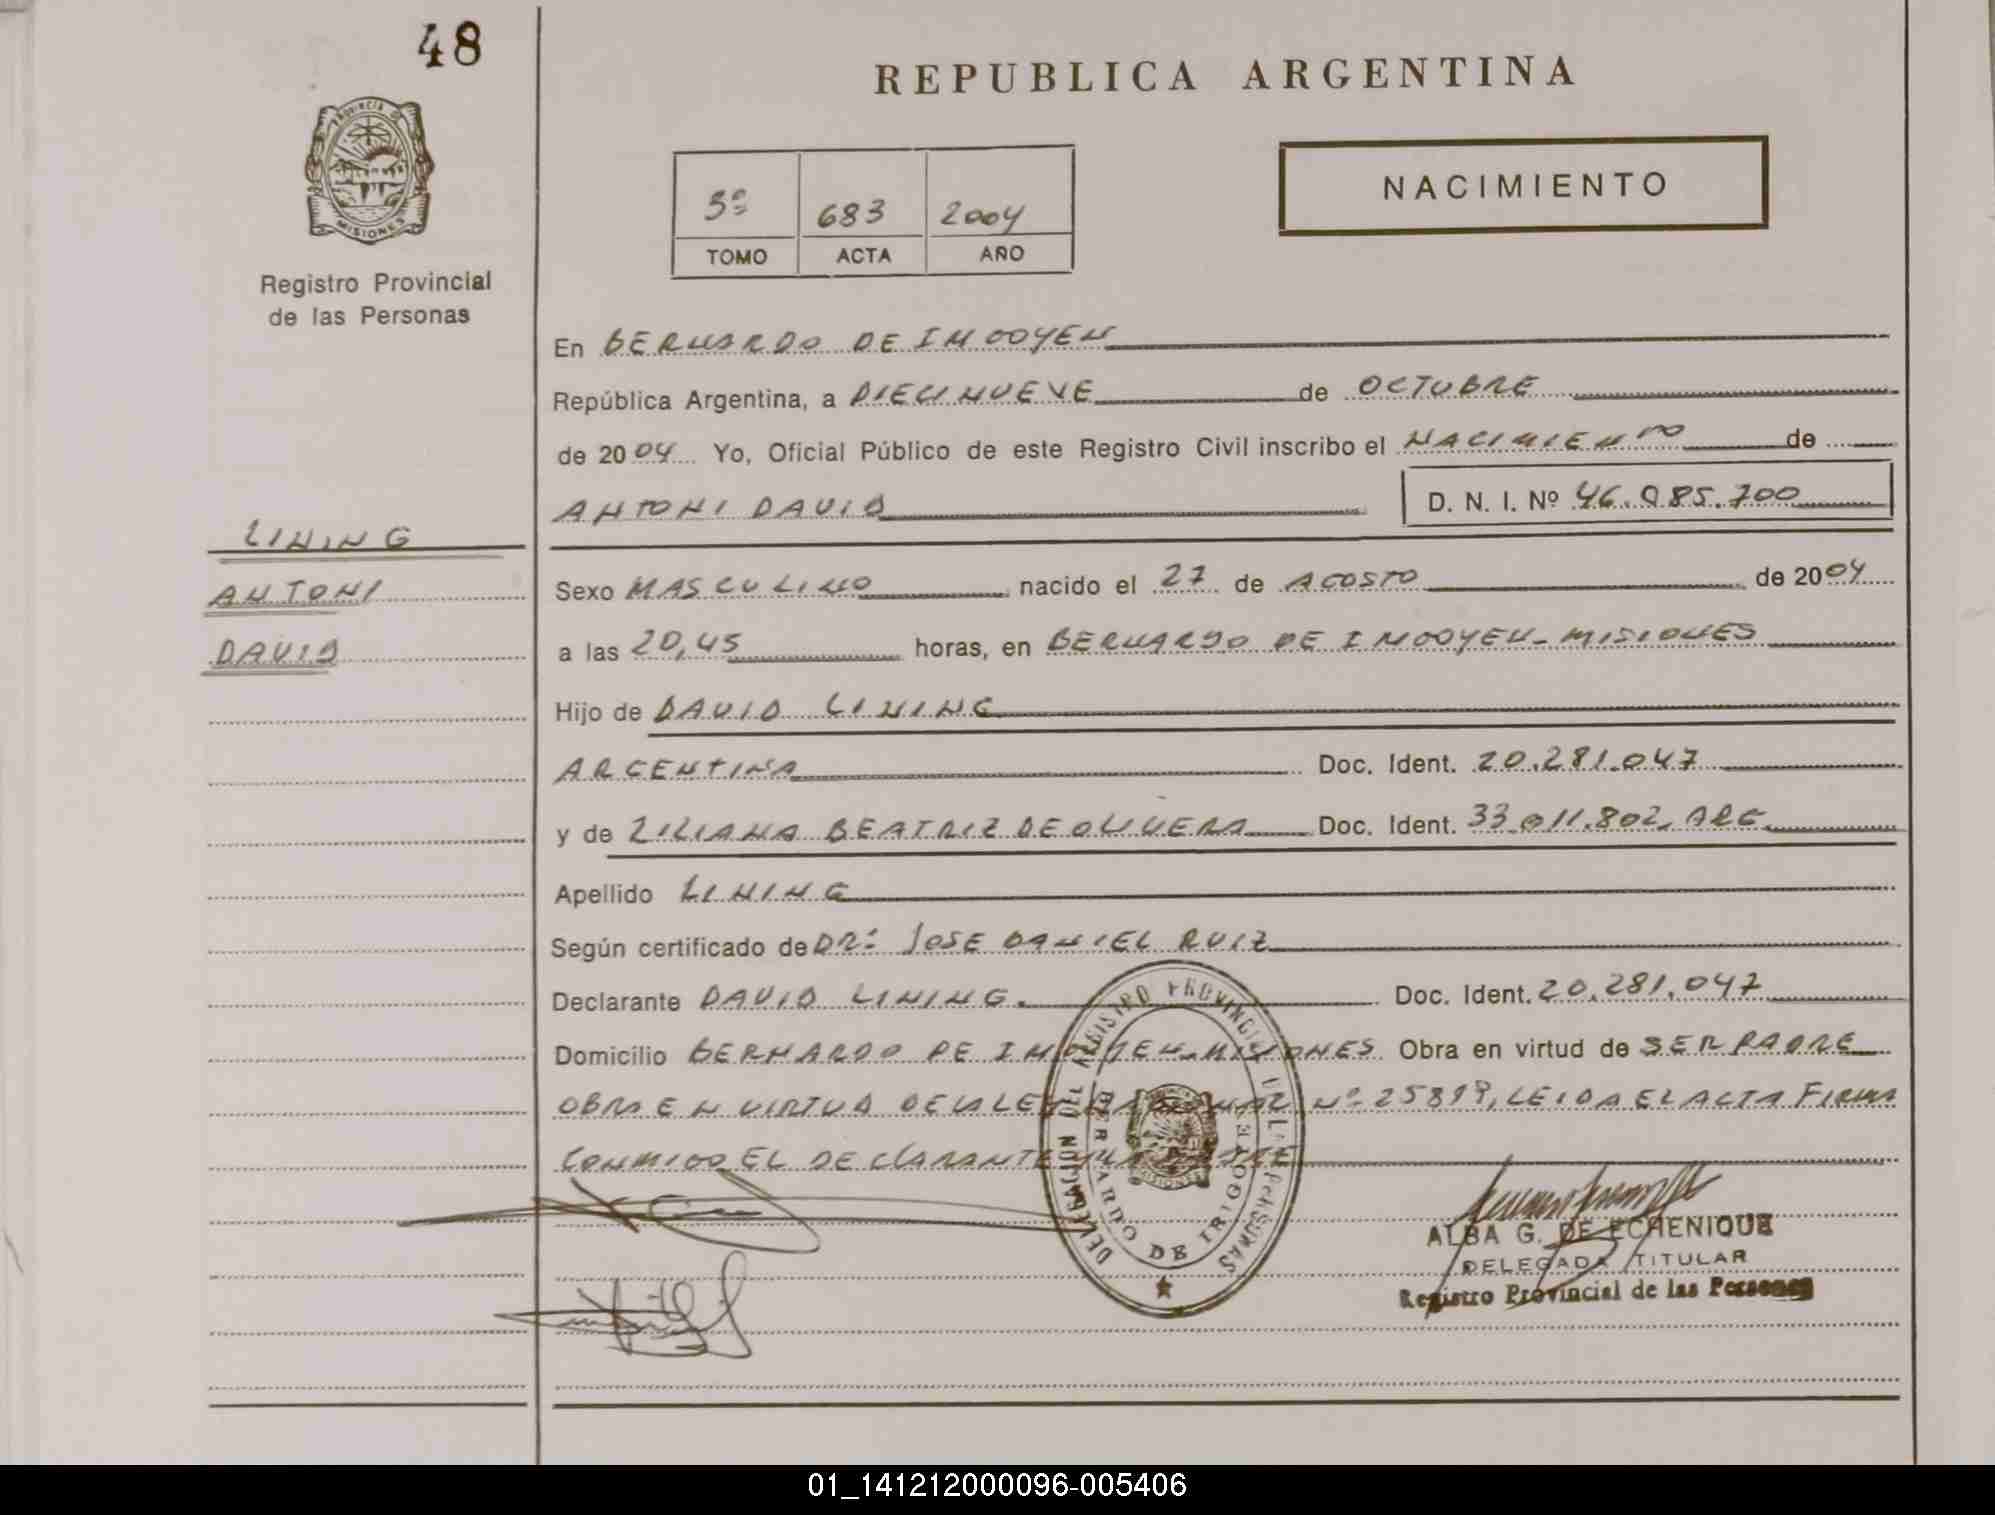 48
REPUBLICA ARGENTINA
PROVINCIA DE
MISIONES
Registro Provincial
de las Personas
3º 683 2004
TOMO ACTA AÑO
NACIMIENTO
En BERNARDO DE IRIGOYEN
República Argentina, a DIECINUEVE de OCTUBRE
de 2004 Yo, Oficial Público de este Registro Civil inscribo el NACIMIENTO de
ANTONI DAVID D. N. I. Nº 46.085.700
LINING
ANTONI
DAVID
Sexo MASCULINO nacido el 27 de AGOSTO de 2004
a las 20,45 horas, en BERNARDO DE IRIGOYEN-MISIONES
Hijo de DAVID LINING
ARGENTINA Doc. Ident. 20.281.047
y de LILIANA BEATRIZ DE OLIVERA Doc. Ident. 33.011.802, ARG
Apellido LINING
Según certificado de DR: JOSE DANIEL RUIZ
Declarante DAVID LINING. Doc. Ident. 20.281.047
Domicilio BERNARDO DE IRIGOYEN-MISIONES Obra en virtud de SER PADRE
OBRA EN VIRTUD DE LA LEY NACIONAL Nº 25819, LEIDA EL ACTA FIRMA
CONMIGO EL DECLARANTE Y LA MADRE
DELEGACION DEL REGISTRO PROVINCIAL DE LAS PERSONAS
BERNARDO DE IRIGOYEN
MISIONES
ALBA G. DE ECHENIQUE
DELEGADA TITULAR
Registro Provincial de las Personas
01_141212000096-005406